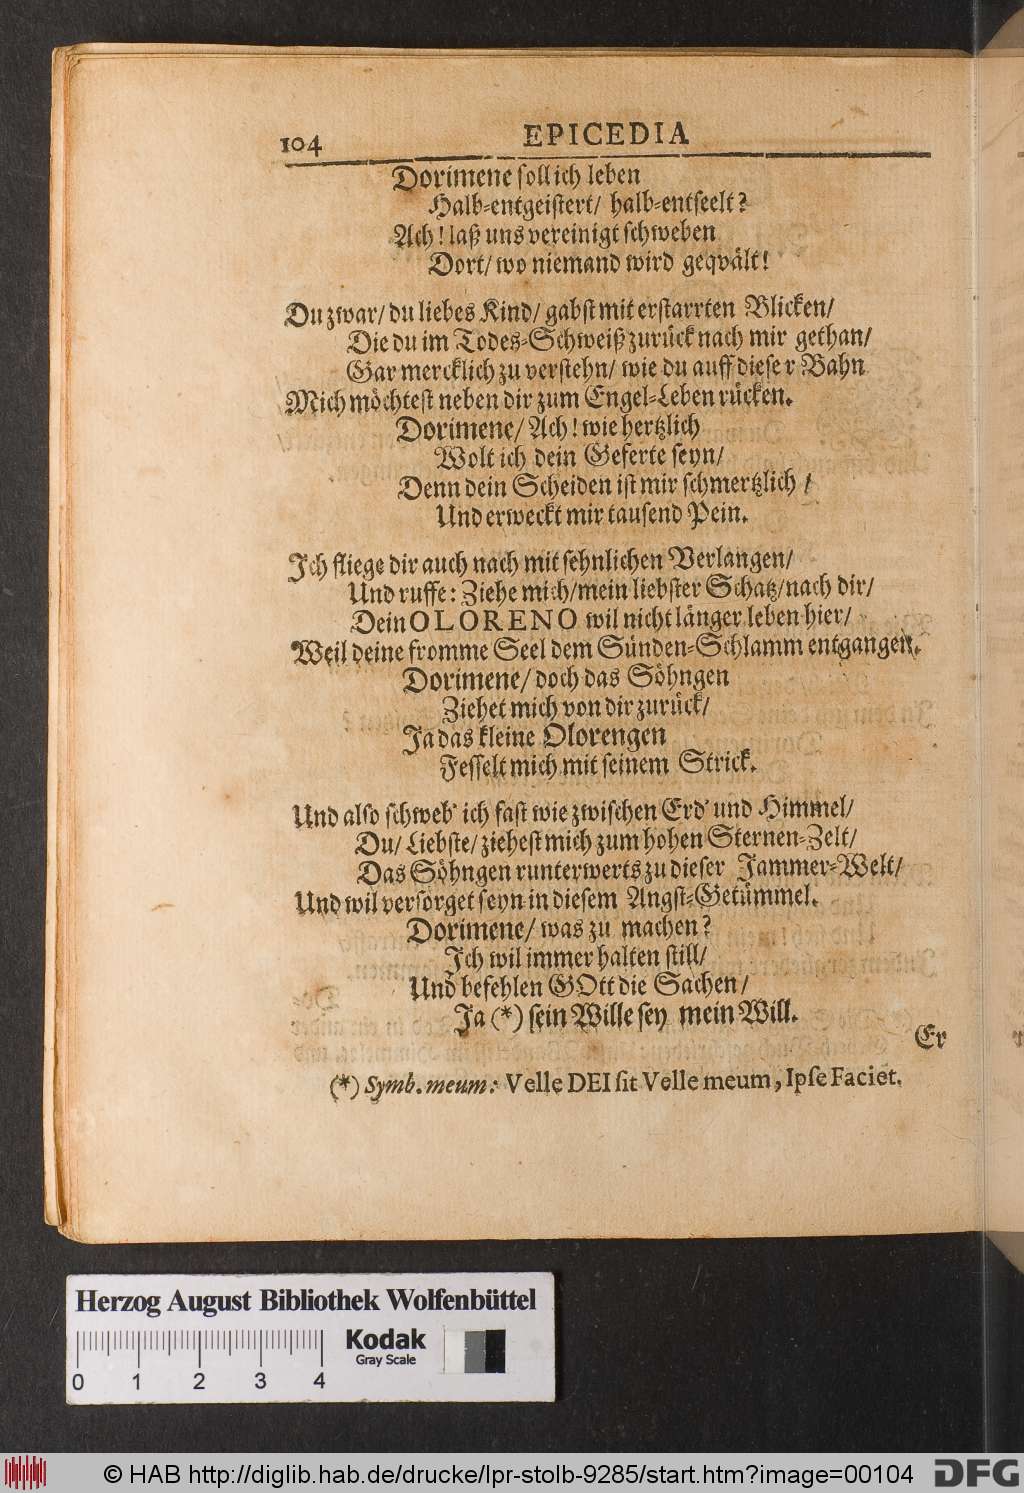 104 EPICEDIA
Dorimene soll ich leben
Halb-entgeistert/ halb-entseelt?
Ach! laß uns vereinigt schweben
Dort/ wo niemand wird geqvält!
Du zwar/ du liebes Kind/ gabst mit erstarrten Blicken/
Die du im Todes-Schweiß zurück nach mir gethan/
Gar mercklich zu verstehn/ wie du auff dieser Bahn
Mich möchtest neben dir zum Engel-Leben rücken.
Dorimene/ Ach! wie hertzlich
Wolt ich dein Geferte seyn/
Denn dein Scheiden ist mir schmertzlich/
Und erweckt mir tausend Pein.
Ich fliege dir auch nach mit sehnlichen Verlangen/
Und ruffe: Ziehe mich/ mein liebster Schatz/ nach dir/
Dein OLORENO wil nicht länger leben hier/
Weil deine fromme Seel dem Sünden-Schlamm entgangen.
Dorimene/ doch das Söhngen
Ziehet mich von dir zurück/
Ja das kleine Olorengen
Fesselt mich mit seinem Strick.
Und also schweb' ich fast wie zwischen Erd' und Himmel/
Du/ Liebste/ ziehest mich zum hohen Sternen-Zelt/
Das Söhngen runterwerts zu dieser Jammer-Welt/
Und wil versorget seyn in diesem Angst-Getümmel.
Dorimene/ was zu machen?
Ich wil immer halten still/
Und befehlen GOtt die Sachen/
Ja (*) sein Wille sey mein Will.
Er
(*) Symb. meum: Velle DEI sit Velle meum, Ipse Faciet.
Herzog August Bibliothek Wolfenbüttel
Kodak
Gray Scale
0 1 2 3 4
© HAB http://diglib.hab.de/drucke/lpr-stolb-9285/start.htm?image=00104
DFG